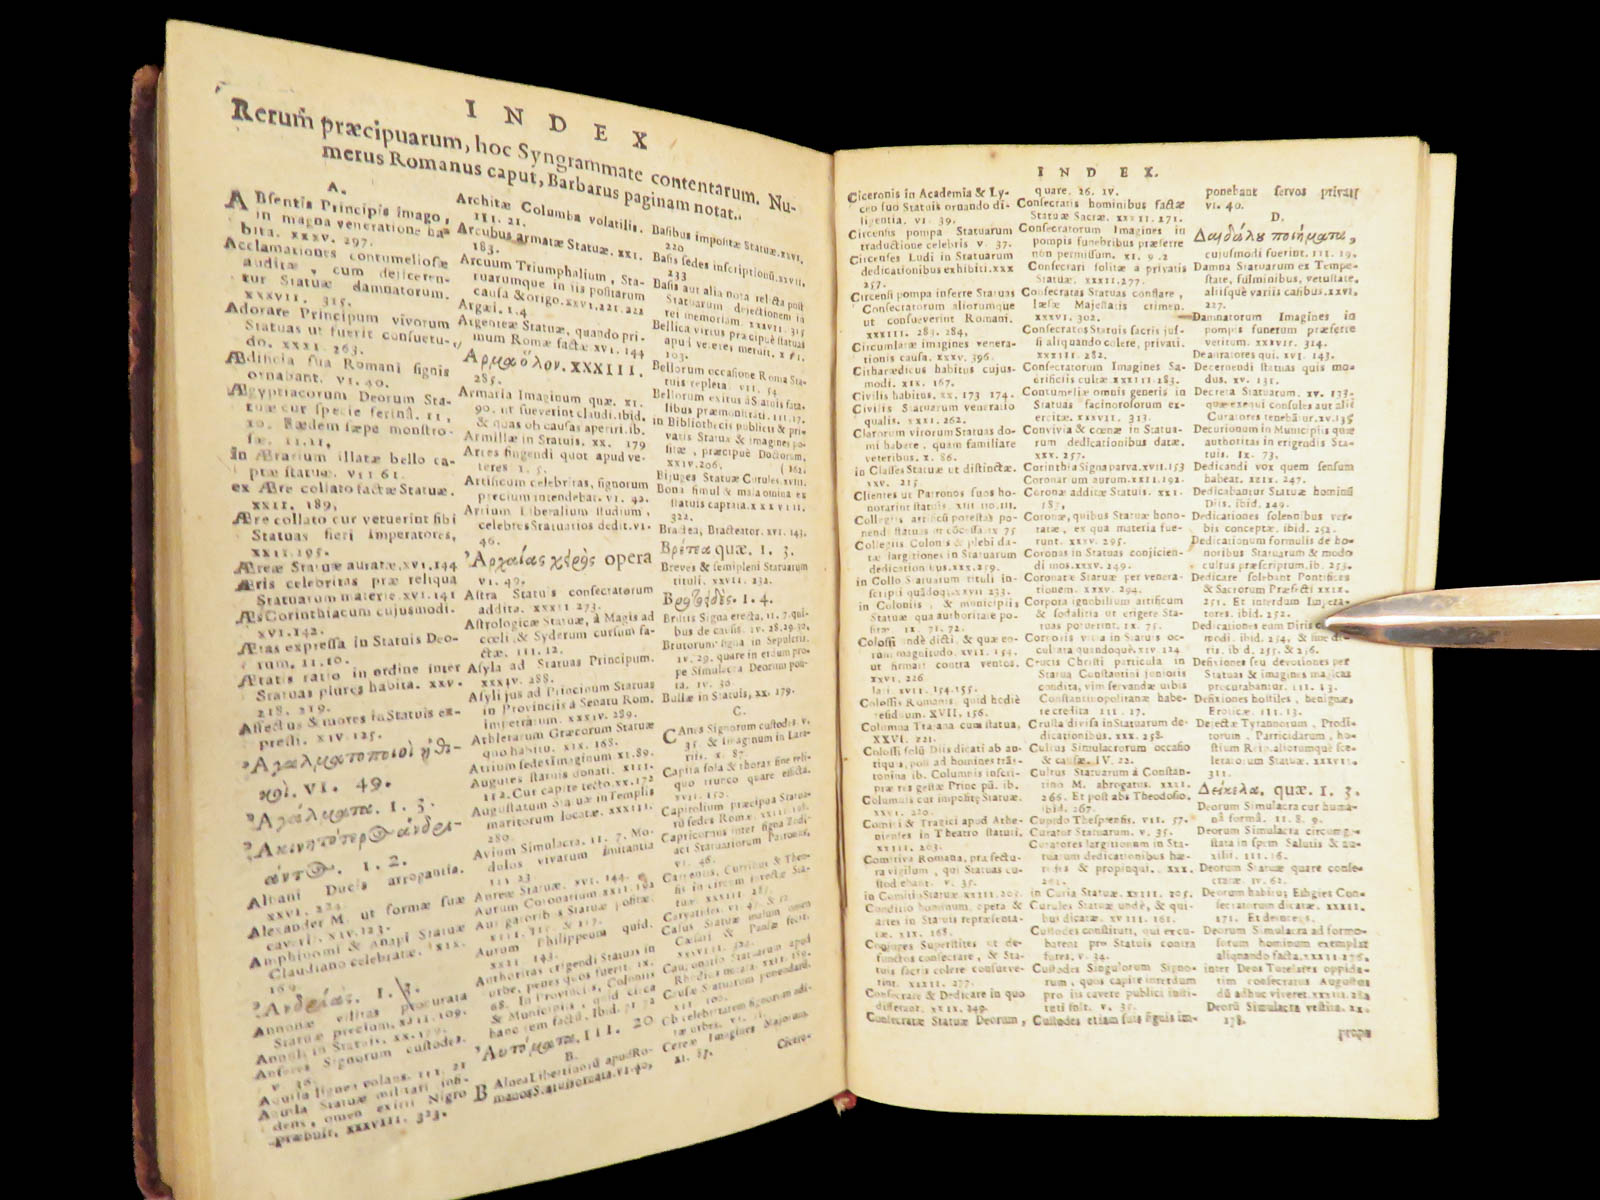 INDEX
Rerum præcipuarum, hoc Syngrammate contentarum. Nu-
merus Romanus caput, Barbarus paginam notat.
A.
ABsentis Principis imago,
in magna veneratione ha-
bita. xxxv. 297.
Acclamationes contumeliosæ
auditæ, cum dejiceren-
tur Statuæ damnatorum.
xxxvii. 315.
Adorare Principum vivorum
Statuas ut fuerit consuetu-
do. xxxi. 263.
Ædificia sua Romani signis
ornabant. vi. 40.
Ægyptiacorum Deorum Sta-
tuæ cur specie ferina. ii,
10. Eædem sæpe monstro-
sæ. ii. 11,
In Ærarium illatæ bello ca-
ptæ statuæ. vii 61.
ex Ære collato factæ Statuæ.
xxii. 189,
Ære collato cur vetuerint sibi
Statuas fieri Imperatores,
xxii. 195.
Æreæ Statuæ auratæ. xvi. 144
Æris celebritas præ reliqua
Statuarum materie. xvi. 141
Æs Corinthiacum cujusmodi.
xvi. 142.
Ætas expressa in Statuis Deo-
rum. ii. 10.
Ætatis ratio in ordine inter
Statuas plures habita. xxv.
218. 219.
Affectus & mores in Statuis ex-
pressi. xiv. 125.
Ἀγαλματοποιοὶ ἠθι-
κοί. VI. 49.
Ἀγάλματα. 1. 3.
1. 2.
Albani Ducis arrogantia.
Alexander M. ut formæ suæ
caverit. xiv. 123.
Amphinomi & Anapi Statuæ
Claudiano celebratæ. xix.
169.
Ἀνδριάς. 1. 3.
Annonæ vilitas procurata
Annuli in Statuis. xx. 179.
Anseres Signorum custodes.
v. 36.
Aquila lignea volans. iii. 21
Aquila Statuæ militari insi-
dens, omen exitii Nigro
præbuit. xxxviii. 323.
Architæ Columba volatilis.
iii. 21.
Arcubus armatæ Statuæ. xxi.
183.
Arcuum Triumphalium, Sta-
tuarumque in iis positarum
causa & origo. xxvi. 221. 222
Argæi. 1. 4
Argenteæ Statuæ, quando pri-
mum Romæ factæ xvi. 144
XXXIII.
285.
Armaria Imaginum quæ. xi.
90. ut fueverint claudi. ibid.
& quas ob causas aperiri. ib.
Armillæ in Statuis. xx. 179
Artes fingendi quot apud ve-
teres 1. 5.
Artificum celebritas, signorum
precium intendebat. vi. 42.
Artium Liberalium studium,
celebres Statuarios dedit. vi.
46.
opera
vi. 49.
Astra Statuis consectatorum
addita. xxxii 273.
Astrologicæ Statuæ, à Magis ad
cœli & Syderum cursum fa-
ctæ. iii. 12.
Asyla ad Statuas Principum.
xxxiv. 288.
Asyli jus ad Principum Statuas
in Provinciis à Senatu Rom.
imperatum. xxxiv. 289.
Athletarum Græcorum Statuæ
quo habitu. xix. 168.
Atrium sedes Imaginum xi. 89.
Augures statuis donati. xiii.
112. Cur capite tecto. xx. 172
Augustatum Statuæ in Templis
maritorum locatæ. xxxiii.
280.
Avium Simulacra. ii. 7. Mo-
dulos vivarum imitantia
iii 23
Aureæ Statuæ. xvi. 144.
Aurum Coronarium xxii. 192
Aurum Philippeum quid.
xxii 143.
Authoritas erigendi Statuas in
urbe, penes quos fuerit. ix.
68. In Provinciis, Coloniis
& Municipiis, quid circa
hanc rem factũ. Ibid. 71. 72
Αὐτόματα. III. 20
B.
BAlnea Libertinorũ apud Ro-
manos Statuis ornata. vi. 40,
Basibus impositæ Statuæ. xxvi.
220
Basis sedes inscriptionũ. xxvii.
233
Basis aut alia nota relicta post
Statuarum dejectionem in
rei memoriam. xxxvii. 315
Bellica virtus præcipuè statuas
apud veteres meruit. xii.
103.
Bellorum occasione Roma Sta-
tuis repleta. vii. 54
Bellorum exitus à Statuis fata-
libus præmonstrati. iii. 17.
in Bibliothecis publicis & pri-
vatis Statuæ & imagines po-
sitæ, præcipuè Doctorum,
xxiv. 206. (162.
Bijuges Statuæ Curules. xviii.
Bona simul & mala omina ex
statuis captata. xxxviii.
322.
Bractea, Bracteator. xvi. 143.
Βρέτεα quæ. 1. 3.
Breves & semipleni Statuarum
tituli. xxvii. 232.
1. 4.
Brutis Signa erecta, ii. 7. qui-
bus de causis. iv. 28. 29. 30.
Brutorum signa in Sepulcris.
iv. 29. quare in eadem pro-
pe Simulacra Deorum posi-
ta. iv. 30
Bullæ in Statuis, xx. 179.
C.
CAnes Signorum custodes. v.
35 & Imaginum in Lara-
riis. x. 87.
Capita sola & thorax sine reli-
quo trunco quare efficta.
xvii. 150.
Capitolium præcipua Statua-
rũ sedes Romæ. xxiii. 198.
Capricornus inter signa Zodi-
aci Statuariorum Patronus,
vi. 46.
Casus Statuæ malum omen
Cæsari & Pansæ fecit.
xxxviii. 322.
Causæ Statuarum ponendarũ.
xii. 100.
Ob celebritatem signorum adi-
tæ urbes. vi. 51.
Cereæ Imagines Majorum.
xi. 87.
Cicero-
INDEX.
Ciceronis in Academia & Ly-
ceo suo Statuis ornando di-
ligentia. vi. 39.
Circensis pompa Statuarum
traductione celebris v. 37.
Circenses Ludi in Statuarum
dedicationibus exhibiti. xxx
257.
Circensi pompa inferre Statuas
Consectatorum aliorumque
ut consueverint Romani.
xxxiii. 283. 284,
Circumlatæ imagines venera-
tionis causa. xxxv. 296.
Citharœdicus habitus cujus-
modi. xix. 167.
Civilis habitus. xx. 173 174.
Civilis Statuarum veneratio
qualis. xxxi. 262.
Clarorum virorum Statuas do-
mi habere, quam familiare
veteribus. x. 86.
in Classes Statuæ ut distinctæ.
xxv. 215
Clientes ut Patronos suos ho-
notarint statuis. xii 110. 111.
Collegiis artificũ potestas po-
nendi statuas nõ cõcessa. ix 75
Collegiis Colonis & plebi da-
tæ largitiones in Statuarum
dedicationibus. xxx. 259.
in Collo Statuarum tituli in-
scripti quãdoq;. xxvii 233.
in Coloniis, & municipiis
Statuæ qua authoritate po-
sitæ ix. 71. 72.
Colossi indè dicti, & quæ eo-
rum magnitudo. xvii. 154.
ut firmati contra ventos.
xxvi. 226
lati. xvii. 154. 155.
Colossi Romanis, quid hodiè
residuum. XVII, 156.
Columna Trajana cum statua,
XXVI. 221.
Colossi solũ Diis dicati ab an-
tiquis, post ad homines trãs-
lati
Columnis cur impositæ Statuæ.
xxvi. 220.
Comici & Tragici apud Athe-
nienses in Theatro statuti.
xxiii. 203.
Comitiva Romana, præfectu-
ra vigilum, qui Statuas cu-
stodiebant. v. 35.
in Comitio Statuæ xxiii. 205.
Conditio hominum, opera &
artes in Statuis repræsenta-
tæ. xix. 168.
Conjuges Superstites ut de-
functos consecrare, & Sta-
tuis sacra colere consueve-
rint. xxxii. 277.
Consecrare & Dedicare in quo
differant. xxix. 249.
Consecratæ Statuæ Deorum,
quare. 26. iv.
Consecratis hominibus factæ
Statuæ Sacræ. xxxii. 271.
Consecratorum Imagines in
pompis funebribus præferre
non permissum. xi. 9. 2
Consecrari solitæ a privatis
Statuæ. xxxii. 277.
Consecratas Statuas conflare,
læsæ Majestatis crimen.
xxxvi. 302.
Consecratos Statuis sacris jus-
si aliquando colere, privati.
xxxiii. 282.
Consecratorum Imagines Sa-
crificiis cultæ. xxxiii. 283.
Contumeliæ omnis generis in
Statuas facinorosorum ex-
ercitæ. xxxvii. 313.
Convivia & cœnæ in Statua-
rum dedicationibus datæ.
xxx. 257.
Corinthia Signa parva. xvii. 153
Coronarium aurum. xxii. 192.
Coronæ additæ Statuis. xxi.
187.
Coronæ, quibus Statuæ hono-
ratæ, ex qua materia fue-
runt. xxxv. 295.
Coronas in Statuas conjicien-
di mos. xxxv. 249.
Coronatæ Statuæ per venera-
tionem. xxxv. 294.
Corpora ignobilium artificum
& sodalitia ut erigere Sta-
tuas potuerint. ix. 75.
Corporis vitia in Statuis oc-
cultata quandoque. xiv. 124
Crucis Christi particula in
Statua Constantini junioris
condita, vim servandæ urbis
Constantinopolitanæ habe-
re credita iii. 17.
Crusta divisa in Statuarum de-
dicationibus. xxx. 258.
Cultus Simulacrorum occasio
& causæ. IV. 22.
Cultus Statuarum à Constan-
tino M. abrogatus. xxxii.
266. Et post abs Theodosio.
ibid. 267.
Cupido Thespiensis. vii. 57.
Curator Statuarum. v. 35.
Curatores largitionum in Sta-
tuarum dedicationibus hæ-
redes & propinqui. xxx.
261.
in Curia Statuæ. xxiii. 205.
Curules Statuæ undè, & qui-
bus dicatæ. xviii. 161.
Custodes constituti, qui excu-
barent pro Statuis contra
fures. v. 34.
Custodes Singulorum Signo-
rum, quos capite interdum
pro iis cavere publici insti-
tuti fuit. v. 35.
Custodes etiam suis signis im-
ponebant servos privati
vi. 40.
D.
Δαιδάλου ποιήματα,
cujusmodi fuerint. iii. 19.
Damna Statuarum ex Tempe-
state, fulminibus, vetustate,
aliisque variis casibus. xxvi.
227.
Damnatorum Imagines in
pompis funerum præferre
vetitum. xxxvii. 314.
Deauratores qui. xvi. 143.
Decernendi statuas quis mo-
dus. xv. 131.
Decreta Statuarum. xv. 133.
quæ exequi consules aut alii
Curatores tenebãtur. xv. 135
Decurionum in Municipiis quæ
authoritas in erigendis Sta-
tuis. ix. 73.
Dedicandi vox quem sensum
habeat. xxix. 247.
Dedicabantur Statuæ hominũ
Diis. ibid. 249.
Dedicationes solennibus ver-
bis conceptæ. ibid. 252.
Dedicationum formulis de ho-
noribus Statuarum & modo
cultus præscriptum. ib. 253.
Dedicare solebant Pontifices
& Sacrorum Præfecti xxix.
251. Et interdum Impera-
tores. ibid. 252.
Dedicationes cum Diris
modi. ibid. 254, & sine di-
ris. ibid. 255. & 256.
Defixiones seu devotiones per
Statuas & imagines magicas
procurabantur. iii. 13.
Defixiones hostiles, benignæ,
Eroticæ. iii. 13.
Dejectæ Tyrannorum, Prodi-
torum, Parricidarum, ho-
stium Reip. aliorumque sce-
leratorum Statuæ. xxxvii.
311.
Δείκελα, quæ. 1. 3.
Deorum Simulacra cur huma-
nâ formâ. ii. 8. 9.
Deorum Simulacra circumge-
stata in spem Salutis & au-
xilii. iii. 16.
Deorum Statuæ quare conse-
cratæ. iv. 62.
Deorum habitus Effigiei Con-
sectatorum dicatæ. xxxii.
171. Et deinceps.
Deorum Simulacra ad formo-
sorum hominum exemplar
aliquando facta. xxxii 276.
inter Deos Tutelares oppida-
tim consecratus Augustus
dũ adhuc viveret. xxxiii. 282
Deorũ Simulacra vestita. xx.
178.
prope